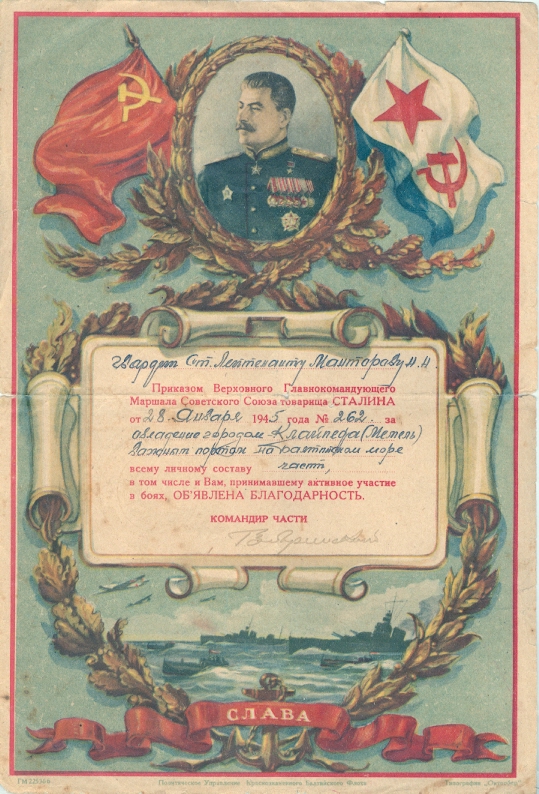 Гвардии Ст. Лейтенанту Майторову Н. Н.
Приказом Верховного Главнокомандующего
Маршала Советского Союза товарища СТАЛИНА
от 28 Января 1945 года № 262. за
овладение городом Клайпеда (Мемель)
важным портом на балтийском море
всему личному составу части,
в том числе и Вам, принимавшему активное участие
в боях, ОБ'ЯВЛЕНА БЛАГОДАРНОСТЬ.
КОМАНДИР ЧАСТИ
СЛАВА
Политическое Управление Краснознаменного Балтийского Флота
Типография